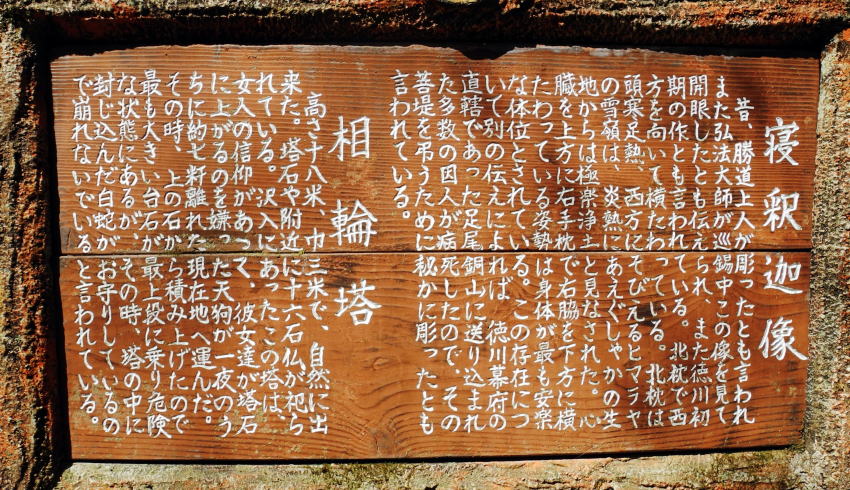 寝釈迦像
昔、勝道上人が彫ったとも言われ
また弘法大師が巡錫中この像を見て
開眼したとも伝えられ、また徳川初
期の作とも言われている。北枕で西
方を向いて横たわっている。北枕は
頭寒足熱、西方にそびえるヒマラヤ
の雪嶺は、炎熱にあえぐしゃかの生
地からは極楽浄土と見なされた。心
臓を上方に右手枕で右脇を下方に横
たわっている姿勢は身体が最も安楽
な体位とされている。この存在につ
いて別の伝えによれば、徳川幕府の
直轄であった足尾銅山に送り込まれ
た多数の囚人が病死したので、その
菩堤を弔うために秘かに彫ったとも
言われている。
相輪塔
高さ十八米、巾三米で、自然に出
来た。塔石や附近に十六石仏が祀ら
れている。沢入にあったこの塔は、
女人の信仰があって、彼女達が塔石
に上がるのを嫌った天狗が一夜のう
ちに約七粁離れた現在地へ運んだ。
その時、上の石から積み上げたので
最も大きい台石が最上段に乗り危険
な状態にあるが、その時、塔の中に
封じ込んだ白蛇がお守りしているの
で崩れないでいると言われている。